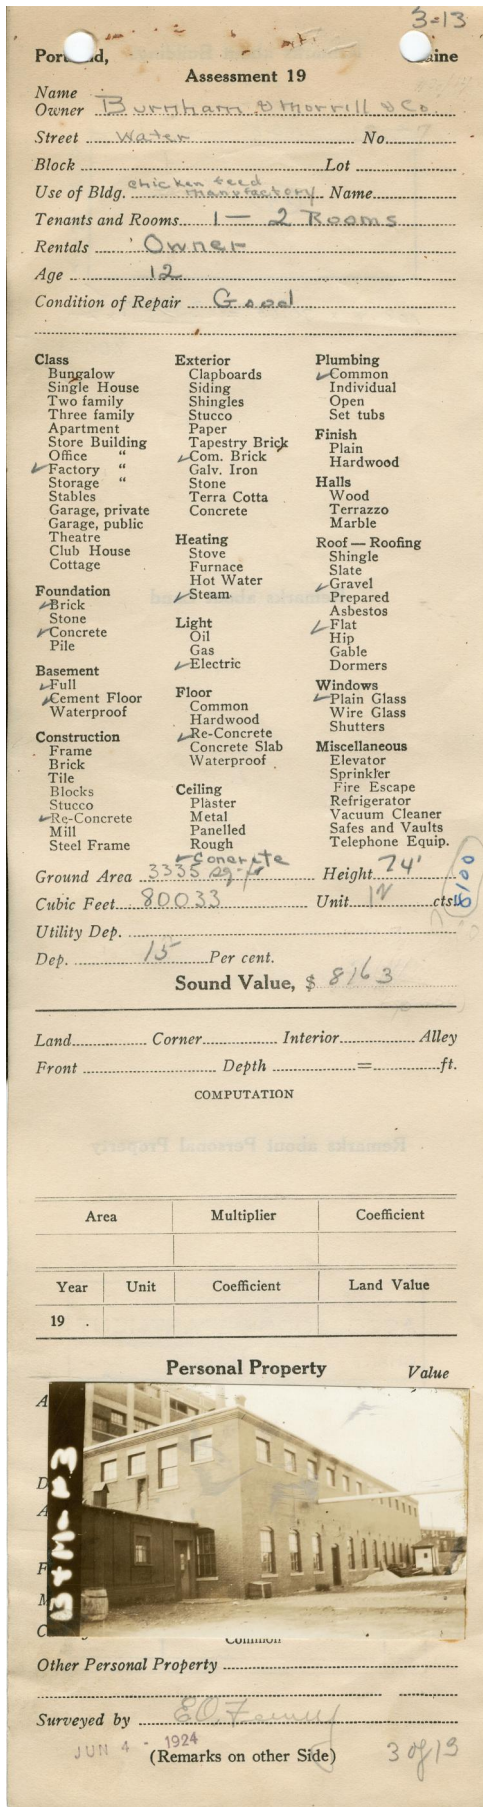 3-13
Portland, Maine
Assessment 19
Name
Owner Burnham & Morrill & Co.
Street Water No.
Block Lot
Use of Bldg. chicken feed manufactory Name
Tenants and Rooms 1 — 2 Rooms
Rentals Owner
Age 12
Condition of Repair Good
Class
Bungalow
Single House
Two family
Three family
Apartment
Store Building
Office "
✓ Factory "
Storage "
Stables
Garage, private
Garage, public
Theatre
Club House
Cottage
Foundation
✓ Brick
Stone
✓ Concrete
Pile
Basement
✓ Full
✓ Cement Floor
Waterproof
Construction
Frame
Brick
Tile
Blocks
Stucco
✓ Re-Concrete
Mill
Steel Frame
Exterior
Clapboards
Siding
Shingles
Stucco
Paper
Tapestry Brick
✓ Com. Brick
Galv. Iron
Stone
Terra Cotta
Concrete
Heating
Stove
Furnace
Hot Water
✓ Steam
Light
Oil
Gas
✓ Electric
Floor
Common
Hardwood
✓ Re-Concrete
Concrete Slab
Waterproof
Ceiling
Plaster
Metal
Panelled
Rough
✓ Concrete
Plumbing
✓ Common
Individual
Open
Set tubs
Finish
Plain
Hardwood
Halls
Wood
Terrazzo
Marble
Roof — Roofing
Shingle
Slate
✓ Gravel
Prepared
Asbestos
✓ Flat
Hip
Gable
Dormers
Windows
✓ Plain Glass
Wire Glass
Shutters
Miscellaneous
Elevator
Sprinkler
Fire Escape
Refrigerator
Vacuum Cleaner
Safes and Vaults
Telephone Equip.
Ground Area 3335 sq-ft Height 24'
Cubic Feet 80033 Unit 12 cts.
8100
Utility Dep.
Dep. 15 Per cent.
Sound Value, $ 8163
Land Corner Interior Alley
Front Depth = ft.
COMPUTATION
Area Multiplier Coefficient
Year Unit Coefficient Land Value
19 .
Personal Property Value
B+M-23
Common
Other Personal Property
Surveyed by
JUN 4 - 1924
(Remarks on other Side) 3 of 13